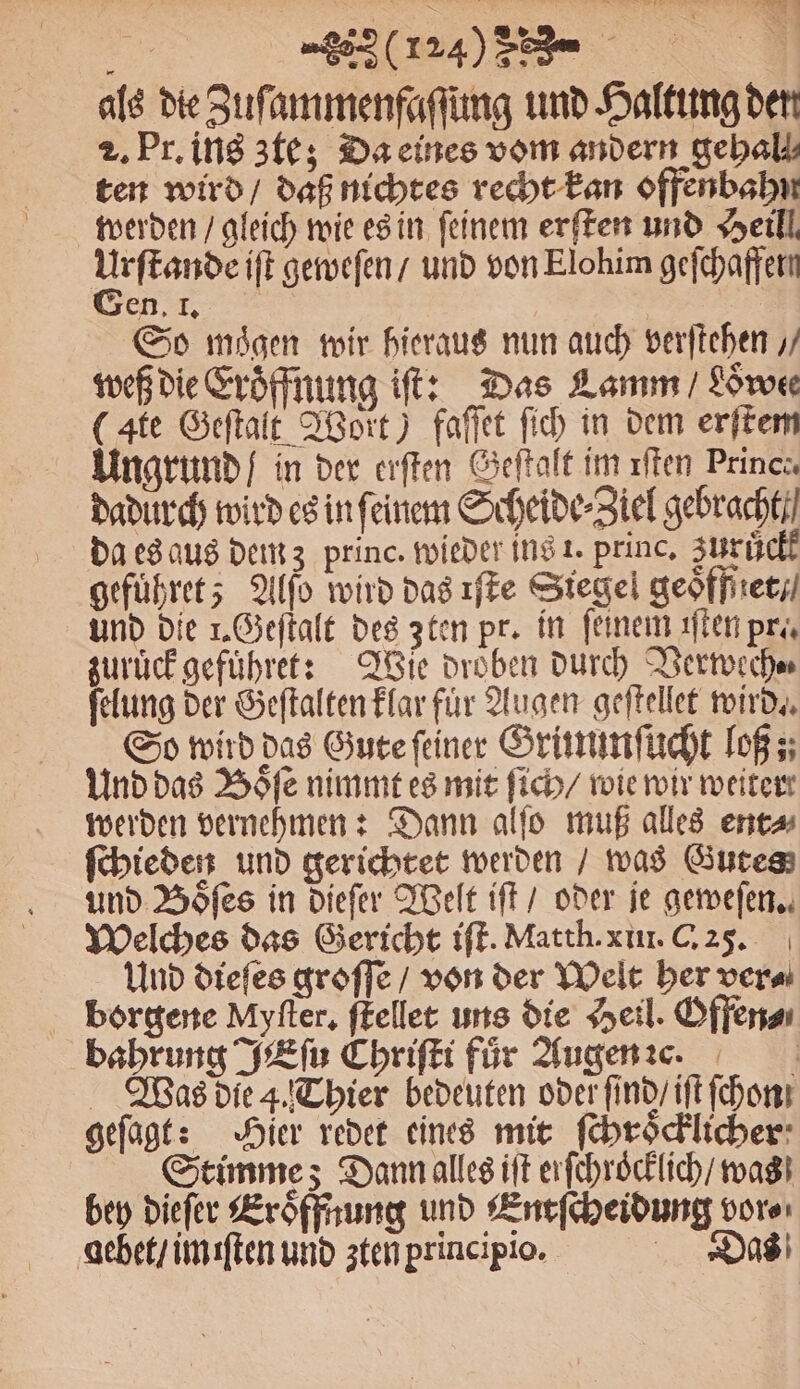 (124)
als die Zuſammenfaſſung und Haltung der
2. Pr. ins 3te; Da eines vom andern gehal-
ten wird / daß nichtes recht kan offenbahr
werden / gleich wie es in ſeinem erſten und Heil.
Urſtande iſt geweſen / und von Elohim geſchaffen
Gen. 1.
So moͤgen wir hieraus nun auch verſtehen /
weß die Eroͤffnung iſt: Das Lamm / Loͤwe
(4te Geſtalt Wort) faſſet ſich in dem erſten
Ungrund / in der erſten Geſtalt im 1ſten Princ.
dadurch wird es in ſeinem Scheide-Ziel gebracht /
da es aus dem 3 princ. wieder ins 1. princ. zuruͤck
gefuͤhret; Alſo wird das 1ſte Siegel geoͤffnet /
und die 1. Geſtalt des 3ten pr. in ſeinem 1ſten pr.
zuruͤck gefuͤhret: Wie droben durch Verwech-
ſelung der Geſtalten klar fuͤr Augen geſtellet wird.
So wird das Gute ſeiner Grimmſucht loß;
Und das Boͤſe nimmt es mit ſich / wie wir weiter
werden vernehmen: Dann alſo muß alles ent-
ſchieden und gerichtet werden / was Gutes
und Boͤſes in dieſer Welt iſt / oder je geweſen.
Welches das Gericht iſt. Matth. XIII. C. 25.
Und dieſes groſſe / von der Welt her ver-
borgene Myſter. ſtellet uns die Heil. Offen-
bahrung JEſu Chriſti fuͤr Augen ꝛc.
Was die 4. Thier bedeuten oder ſind / iſt ſchon
geſagt: Hier redet eines mit ſchroͤcklicher
Stimme; Dann alles iſt erſchroͤcklich / was
bey dieſer Eroͤffnung und Entſcheidung vor-
gehet / im 1ſten und 3ten principio. Das